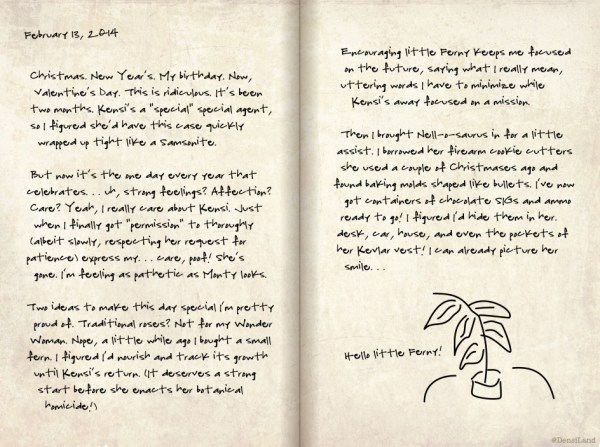 February 13, 2014
Christmas. New Year's. My birthday. Now,
Valentine's Day. This is ridiculous. It's been
two months. Kensi's a "special" special agent,
so I figured she'd have this case quickly
wrapped up tight like a Samsonite.
But now it's the one day every year that
celebrates. . . uh, strong feelings? Affection?
Care? Yeah, I really care about Kensi. Just
when I finally got "permission" to thoroughly
(albeit slowly, respecting her request for
patience) express my. . . care, poof! She's
gone. I'm feeling as pathetic as Monty looks.
Two ideas to make this day special I'm pretty
proud of. Traditional roses? Not for my Wonder
Woman. Nope, a little while ago I bought a small
fern. I figured I'd nourish and track its growth
until Kensi's return. (It deserves a strong
start before she enacts her botanical
homicide!)
Encouraging little Ferny keeps me focused
on the future, saying what I really mean,
uttering words I have to minimize while
Kensi's away focused on a mission.
Then I brought Nell-o-saurus in for a little
assist. I borrowed her firearm cookie cutters
she used a couple of Christmases ago and
found baking molds shaped like bullets. I've now
got containers of chocolate SIGs and ammo
ready to go! I figured I'd hide them in her.
desk, car, house, and even the pockets of
her Kevlar vest! I can already picture her
smile. . .
Hello little Ferny!
@DensiLand